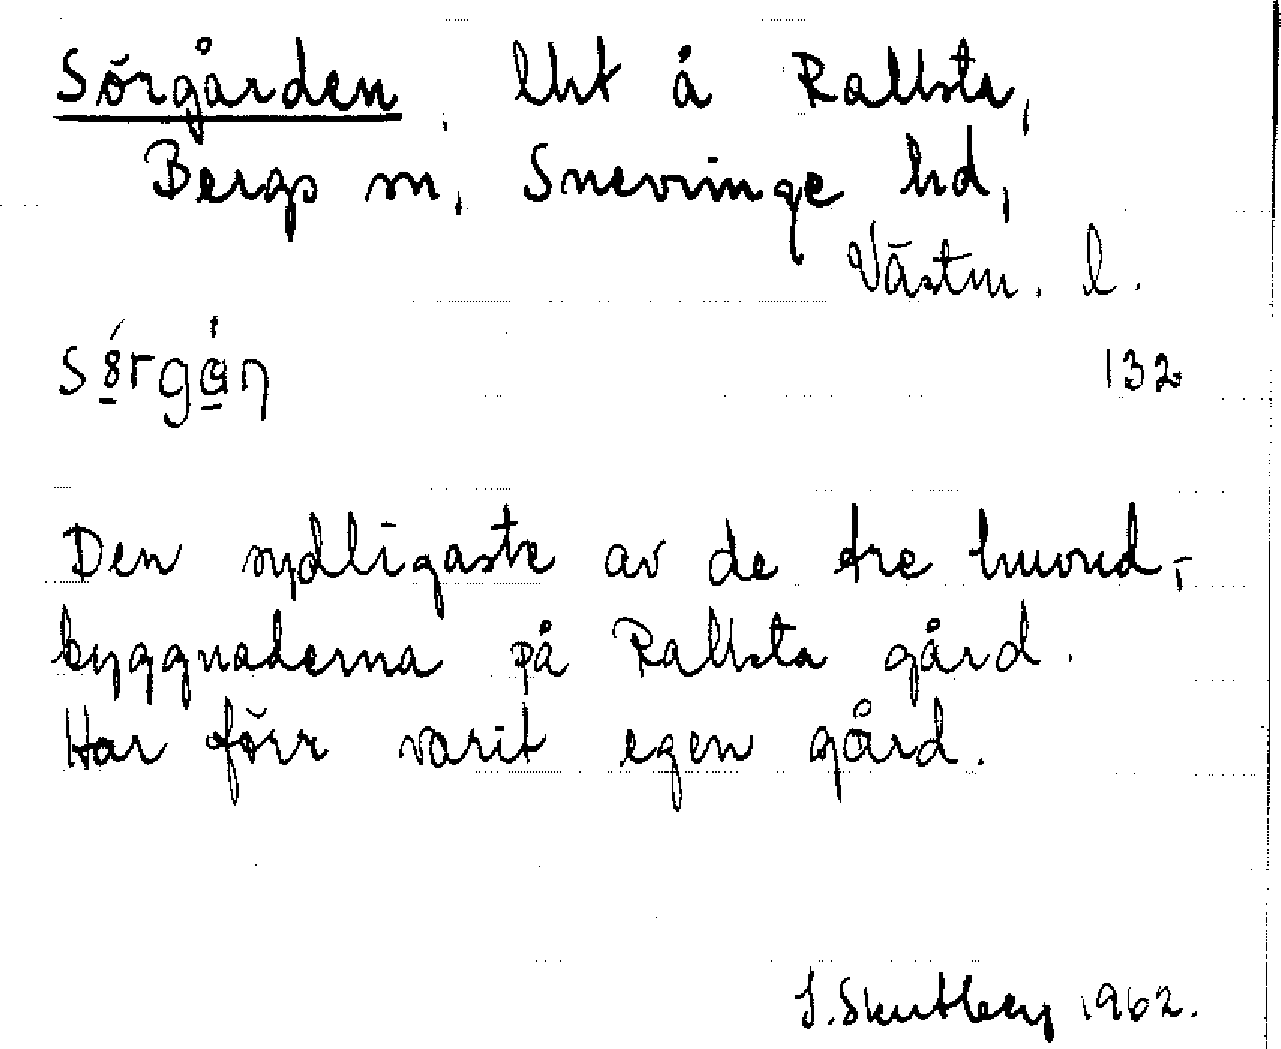 Sörgården, lht å Rallsta,
Bergs sn, Snevringe hd,
Västm. l.
132.
Den sydligaste av de tre huvud-
byggnaderna på Rallsta gård.
Har förr varit egen gård.
S. Skutberg 1962.